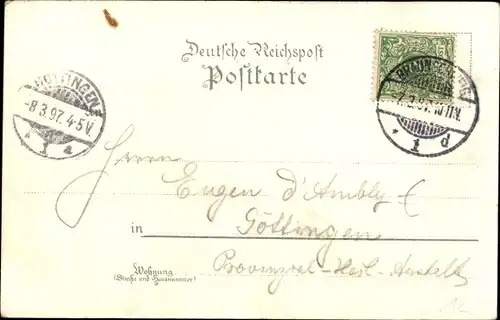 Deutsche Reichspost
Postkarte
GÖTTINGEN
-8.3.97.4-5V.
1 a
BRAUNSCHWEIG
1 d
Herrn
Eugen d'Ambly
in Göttingen
Provinzial-Heil-Anstalt
Wohnung
(Straße und Hausnummer)